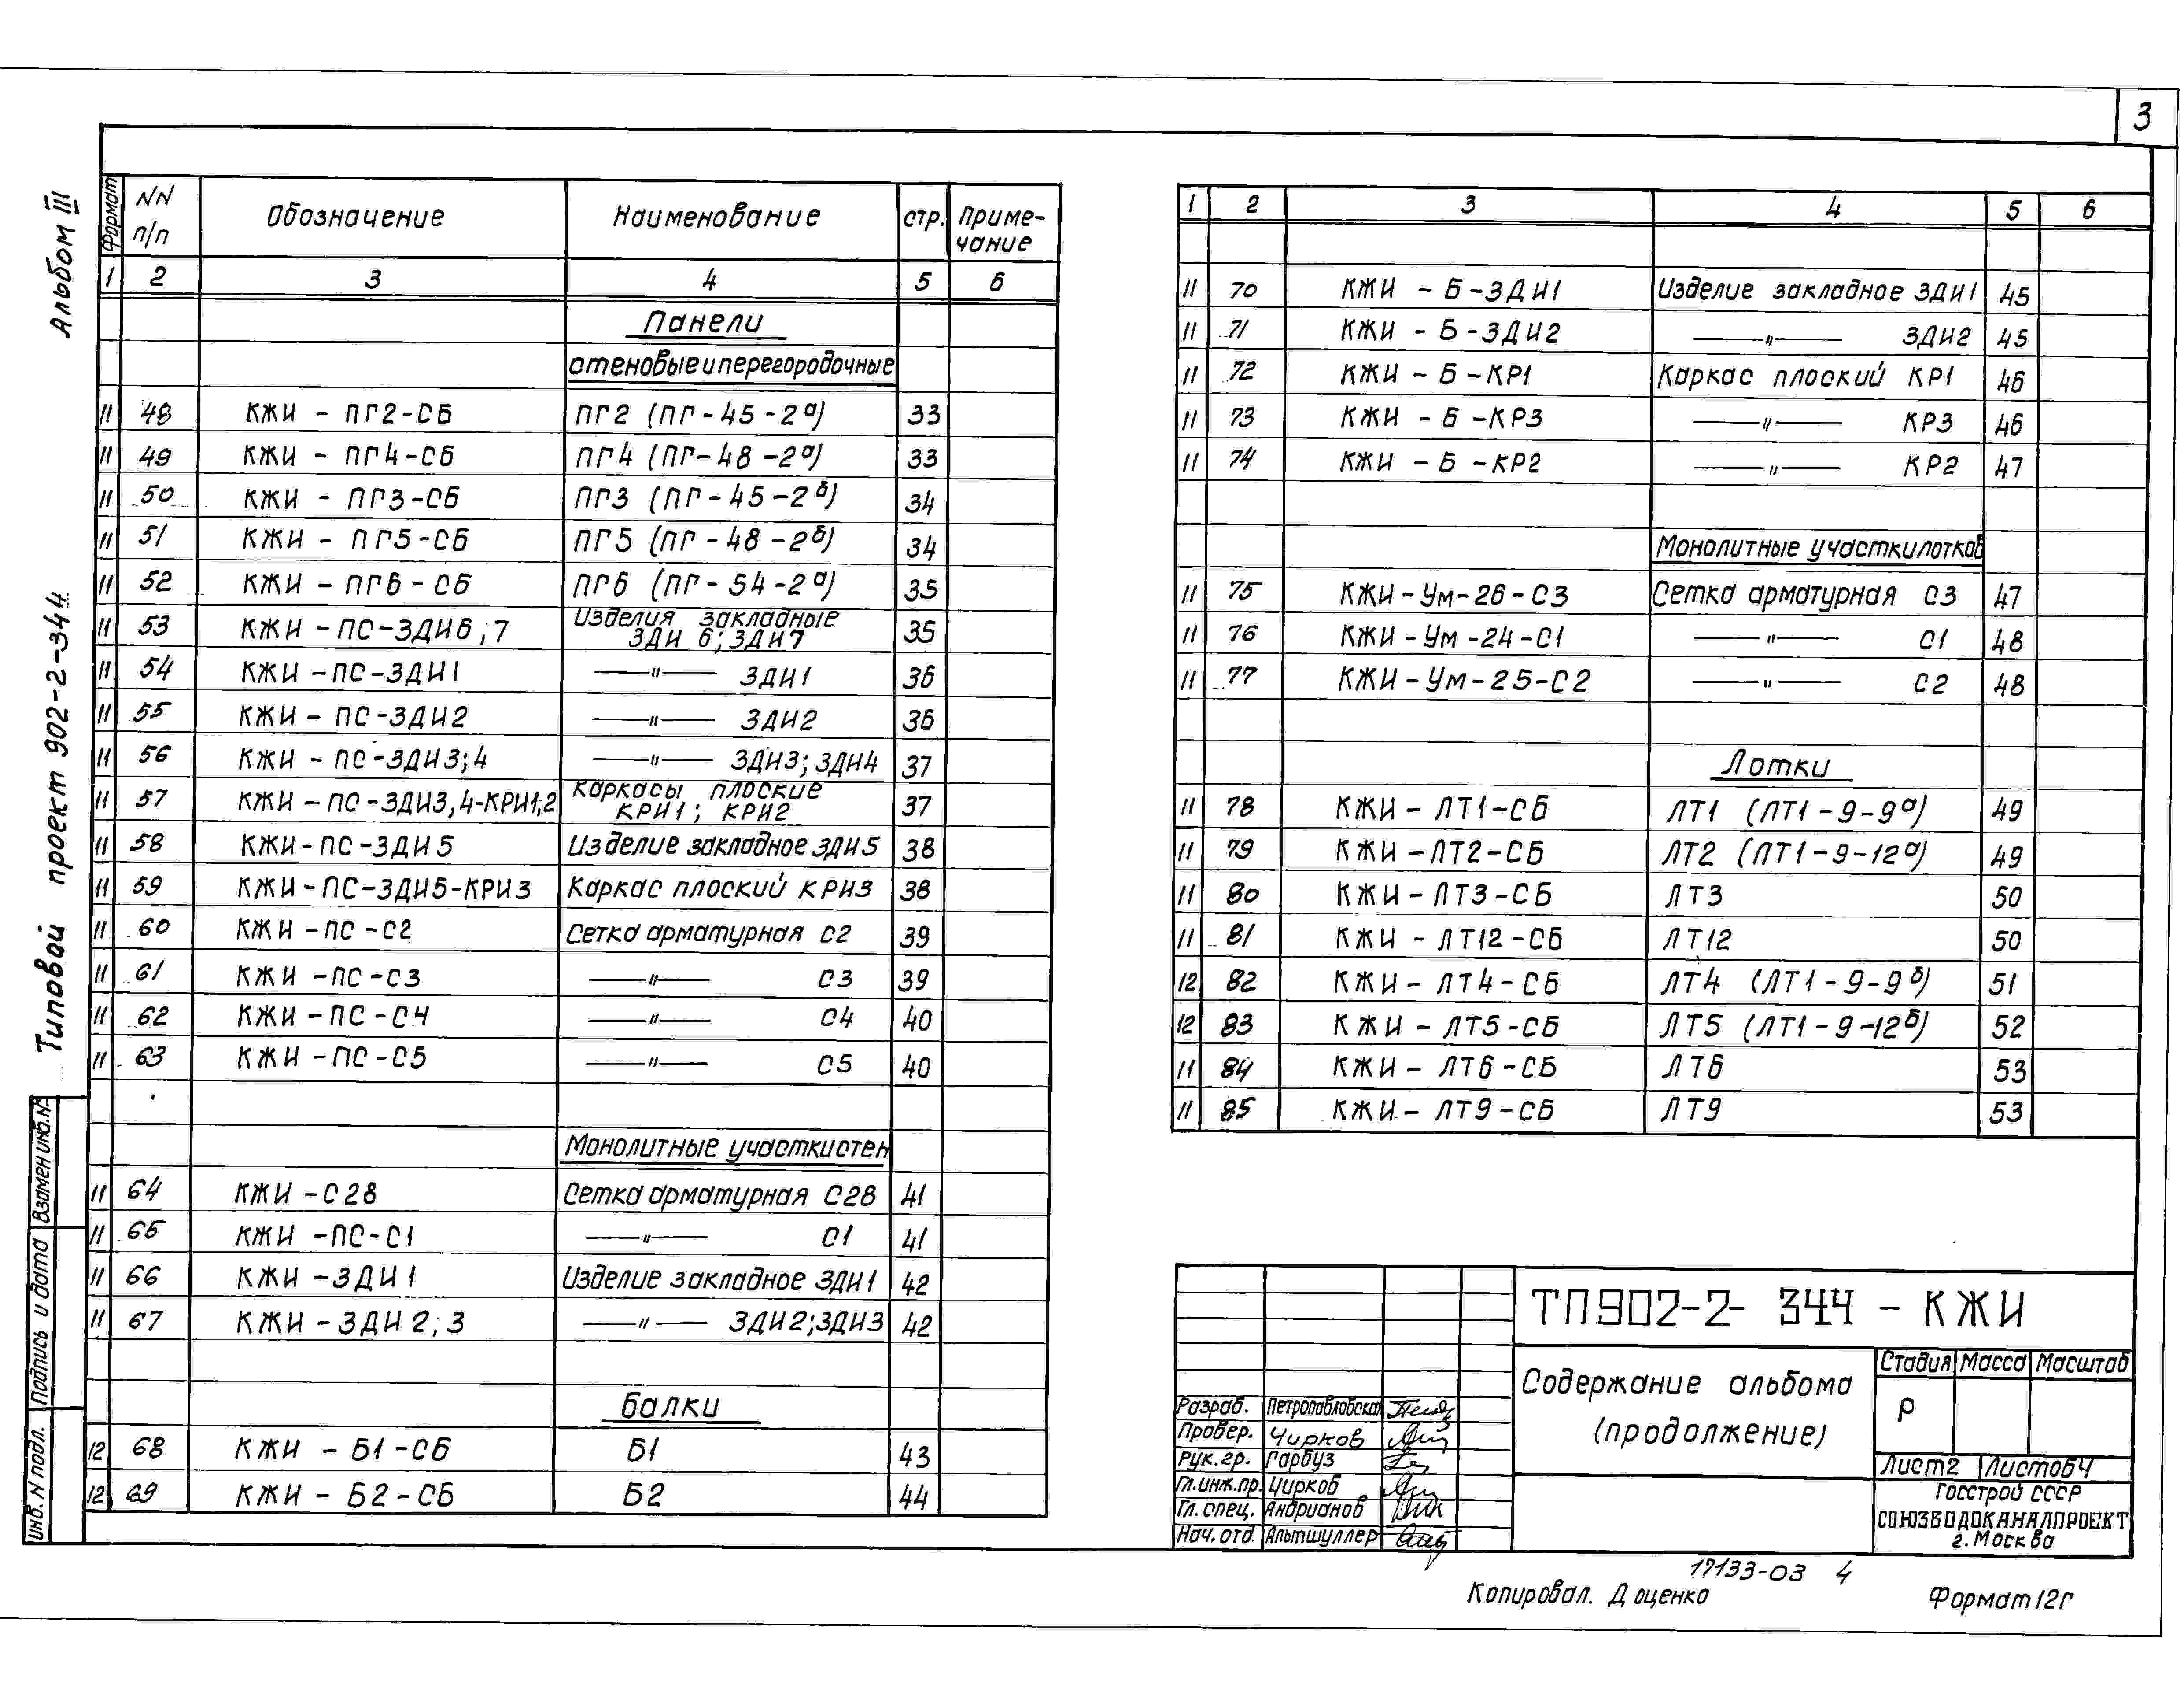 3
Альбом III
Типовой проект 902-2-344
Формат NN п/п Обозначение Наименование стр. Приме-чание
1 2 3 4 5 6
Панели
стеновые и перегородочные
11 48 КЖИ - ПГ2-СБ ПГ2 (ПГ-45-2а) 33
11 49 КЖИ - ПГ4-СБ ПГ4 (ПГ-48-2а) 33
11 50 КЖИ - ПГ3-СБ ПГ3 (ПГ-45-2б) 34
11 51 КЖИ - ПГ5-СБ ПГ5 (ПГ-48-2б) 34
11 52 КЖИ - ПГ6-СБ ПГ6 (ПГ-54-2а) 35
11 53 КЖИ-ПС-ЗДИ6,7 Изделия закладные ЗДИ 6; ЗДИ7 35
11 54 КЖИ-ПС-ЗДИ1 —"— ЗДИ1 36
11 55 КЖИ-ПС-ЗДИ2 —"— ЗДИ2 36
11 56 КЖИ-ПС-ЗДИ3;4 —"— ЗДИ3; ЗДИ4 37
11 57 КЖИ-ПС-ЗДИ3,4-КРИ1;2 Каркасы плоские КРИ1; КРИ2 37
11 58 КЖИ-ПС-ЗДИ5 Изделие закладное ЗДИ5 38
11 59 КЖИ-ПС-ЗДИ5-КРИ3 Каркас плоский КРИ3 38
11 60 КЖИ-ПС-С2 Сетка арматурная С2 39
11 61 КЖИ-ПС-С3 —"— С3 39
11 62 КЖИ-ПС-С4 —"— С4 40
11 63 КЖИ-ПС-С5 —"— С5 40
Монолитные участки стен
11 64 КЖИ-С28 Сетка арматурная С28 41
11 65 КЖИ-ПС-С1 —"— С1 41
11 66 КЖИ-ЗДИ1 Изделие закладное ЗДИ1 42
11 67 КЖИ-ЗДИ2;3 —"— ЗДИ2;ЗДИ3 42
Балки
12 68 КЖИ - Б1-СБ Б1 43
12 69 КЖИ - Б2-СБ Б2 44
1 2 3 4 5 6
11 70 КЖИ - Б-ЗДИ1 Изделие закладное ЗДИ1 45
11 71 КЖИ - Б-ЗДИ2 —"— ЗДИ2 45
11 72 КЖИ - Б-КР1 Каркас плоский КР1 46
11 73 КЖИ - Б-КР3 —"— КР3 46
11 74 КЖИ - Б-КР2 —"— КР2 47
Монолитные участки лотков
11 75 КЖИ-Ум-26-С3 Сетка арматурная С3 47
11 76 КЖИ-Ум-24-С1 —"— С1 48
11 77 КЖИ-Ум-25-С2 —"— С2 48
Лотки
11 78 КЖИ-ЛТ1-СБ ЛТ1 (ЛТ1-9-9а) 49
11 79 КЖИ-ЛТ2-СБ ЛТ2 (ЛТ1-9-12а) 49
11 80 КЖИ-ЛТ3-СБ ЛТ3 50
11 81 КЖИ - ЛТ12-СБ ЛТ12 50
12 82 КЖИ - ЛТ4-СБ ЛТ4 (ЛТ1-9-9б) 51
12 83 КЖИ - ЛТ5-СБ ЛТ5 (ЛТ1-9-12б) 52
11 84 КЖИ - ЛТ6-СБ ЛТ6 53
11 85 КЖИ - ЛТ9-СБ ЛТ9 53
Взамен инб.№
Подпись и дата
инв. N подл.
ТП902-2-344-КЖИ
Содержание альбома
(продолжение)
Стадия Масса Масштаб
Р
Лист2 Листов4
Госстрой СССР
СОЮЗВОДОКАНАЛПРОЕКТ
г. Москва
Разраб. Петропавловская
Провер. Чирков
Рук.гр. Гарбуз
Гл.инж.пр. Чирков
Гл.спец. Андрианов
Нач.отд. Альтшуллер
17133-03 4
Копировал. Доценко
Формат 12Г